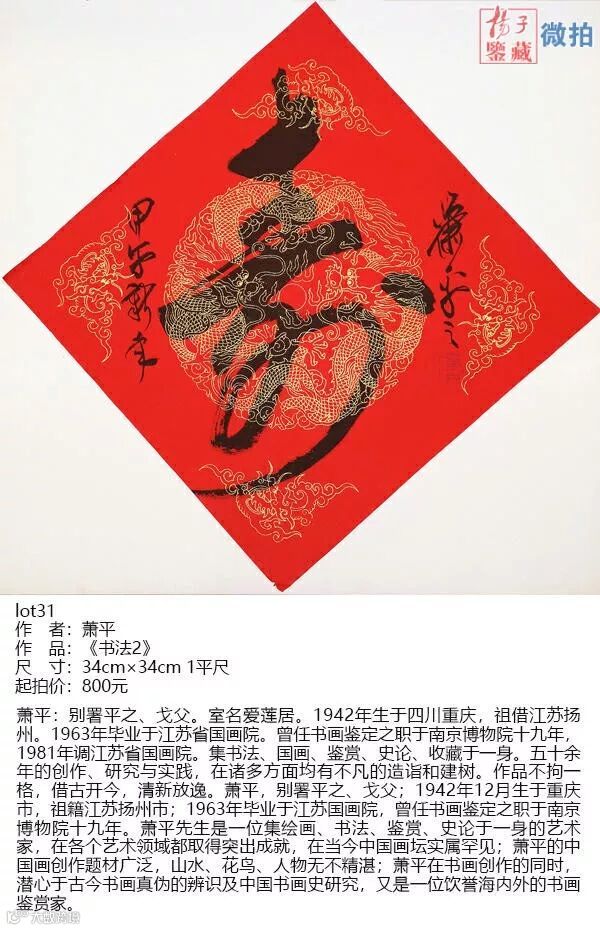 杨子
鉴藏
微拍
寿
甲午新年
萧平之
lot31
作 者：萧平
作 品：《书法2》
尺 寸：34cm×34cm 1平尺
起拍价：800元
萧平：别署平之、戈父。室名爱莲居。1942年生于四川重庆，祖借江苏扬
州。1963年毕业于江苏省国画院。曾任书画鉴定之职于南京博物院十九年，
1981年调江苏省国画院。集书法、国画、鉴赏、史论、收藏于一身。五十余
年的创作、研究与实践，在诸多方面均有不凡的造诣和建树。作品不拘一
格，借古开今，清新放逸。萧平，别署平之、戈父；1942年12月生于重庆
市，祖籍江苏扬州市；1963年毕业于江苏国画院，曾任书画鉴定之职于南京
博物院十九年。萧平先生是一位集绘画、书法、鉴赏、史论于一身的艺术
家，在各个艺术领域都取得突出成就，在当今中国画坛实属罕见；萧平的中
国画创作题材广泛，山水、花鸟、人物无不精湛；萧平在书画创作的同时，
潜心于古今书画真伪的辨识及中国书画史研究，又是一位饮誉海内外的书画
鉴赏家。